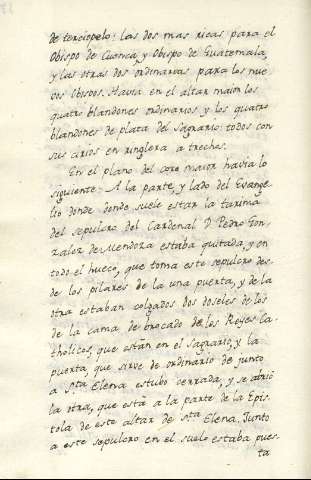 de terciopelo: las dos mas ricas para el
Obispo de Cuenca, y Obispo de Guatemala,
y las otras dos ordinarias para los nue
vos Obispos. Havia en el altar maior los
quatro blandones ordinarios y los quatro
blandones de plata del Sagrario: todos con
sus cirios en ringlera a trechos.
En el plano del coro maior havia lo
siguiente - A la parte, y lado del Evange-
lio donde donde suele estar la tarima
del sepulcro del Cardenal D. Pedro Gon-
zalez de Mendoza estaba quitada, y en
todo el hueco, que toma este sepulcro des-
de los pilares de la una puerta, y de la
otra estaban colgados dos doseles de los
de la cama de brocado de los Reyes Ca-
tholicos, que estàn en el Sagrario, y la
puerta, que sirve de ordinario de junto
a Sta Elena estubo cerrada, y se abriò
la otra, que està a la parte de la Epis-
tola de este altar de Sta Elena. Junto
a este sepulcro en el suelo estaba pues-
ta